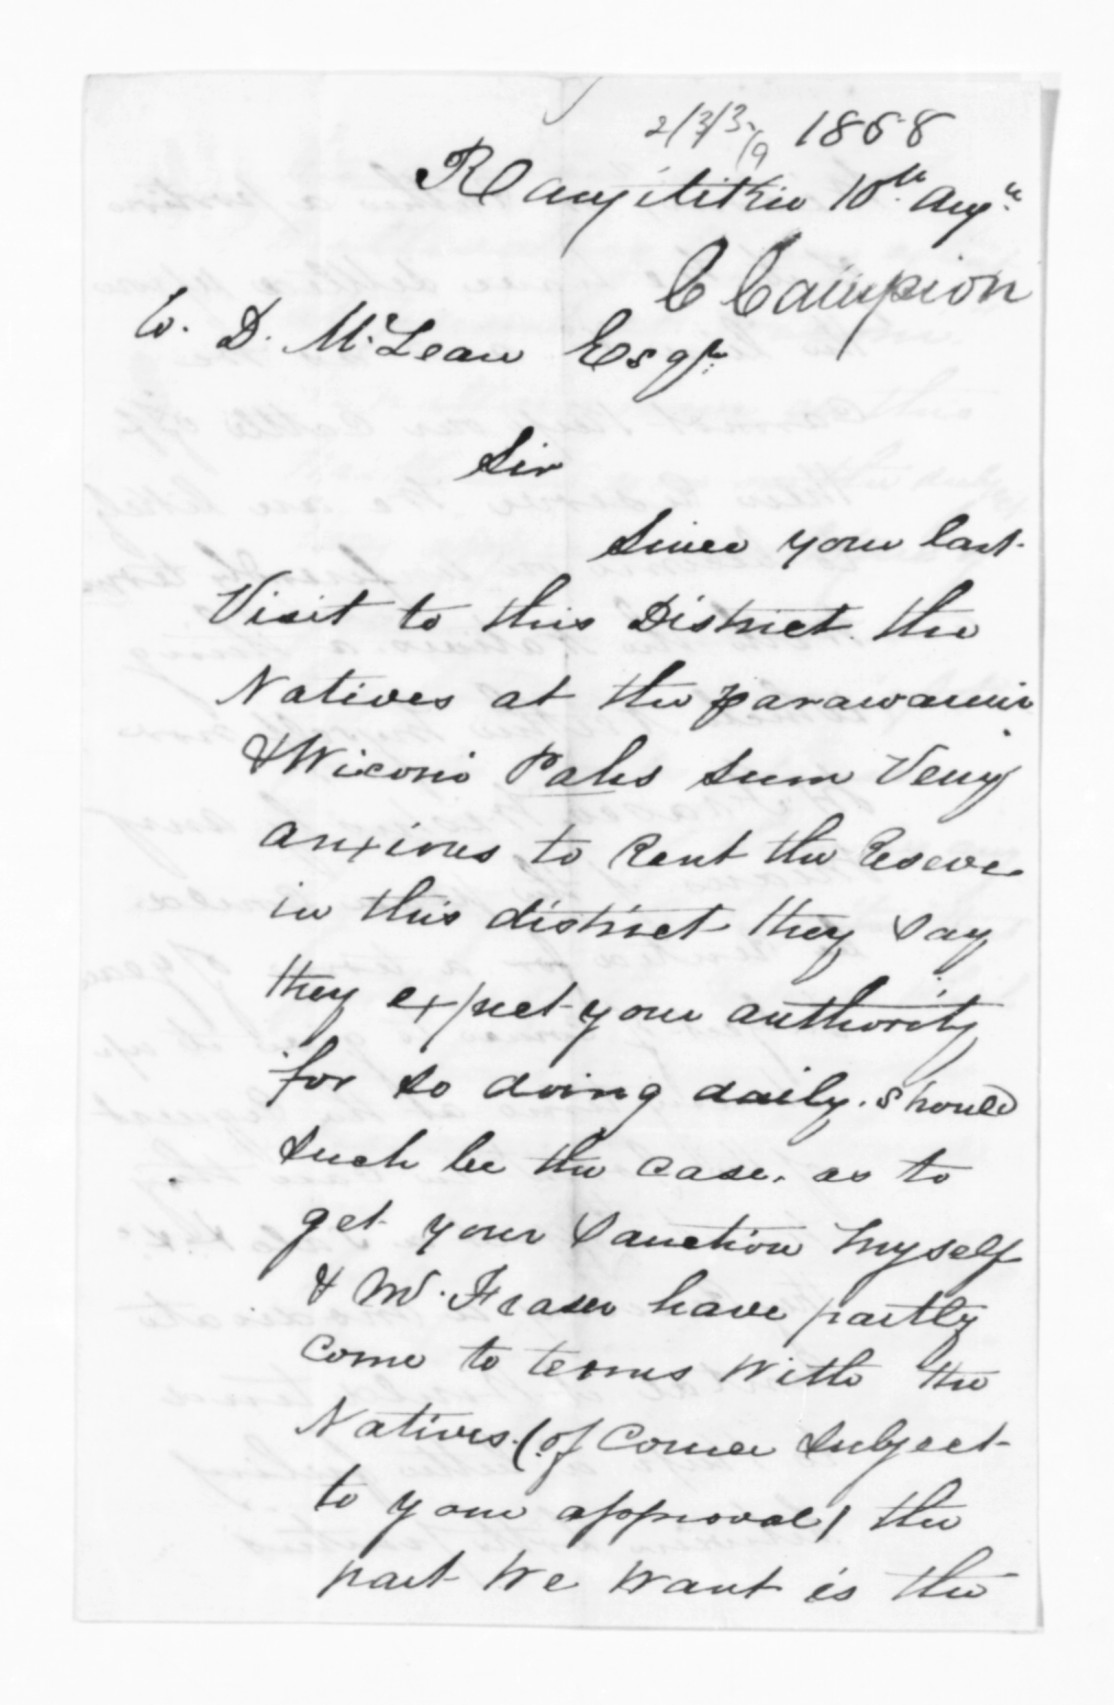 1868
Rangitikie 10th Augt
C Campion
To. D. McLean Esqr.
Sir
Since your last
Visit to this District. the
Natives at the parawanui
& Wiconio Pahs seem Very
anxious to Rent the Reseve
in this district they say
they expect your authority
for so doing daily. should
such be the case. as to
get your Sanction Myself
& Mr. Fraser have partly
come to terms With the
Natives. (of course Subject
to your approval) the
part We Want is the